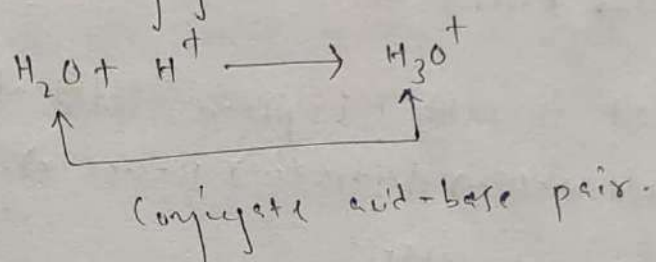 H₂O + H⁺ ⟶ H₃O⁺
Conjugate acid-base pair.